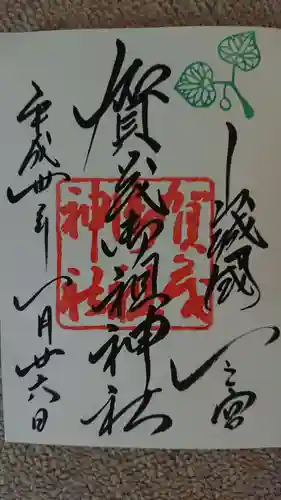 山城國
一之宮
賀茂御祖神社
平成卅年八月廿六日
賀茂
神社